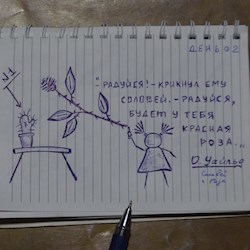 ДЕНЬ 02
"РАДУЙСЯ! - КРИКНУЛ ЕМУ
СОЛОВЕЙ. - РАДУЙСЯ,
БУДЕТ У ТЕБЯ
КРАСНАЯ
РОЗА...
О. Уайльд